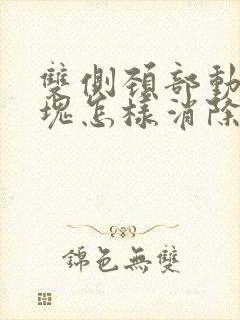 雙側頸部動
塊怎樣消除
錦色無雙